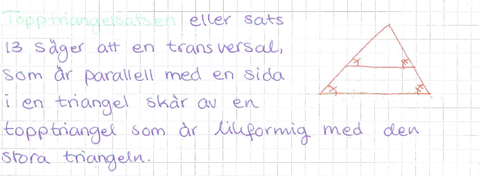 Topptriangelsatsen eller sats
13 säger att en transversal,
som är parallell med en sida
i en triangel skär av en
topptriangel som är likformig med den
stora triangeln.